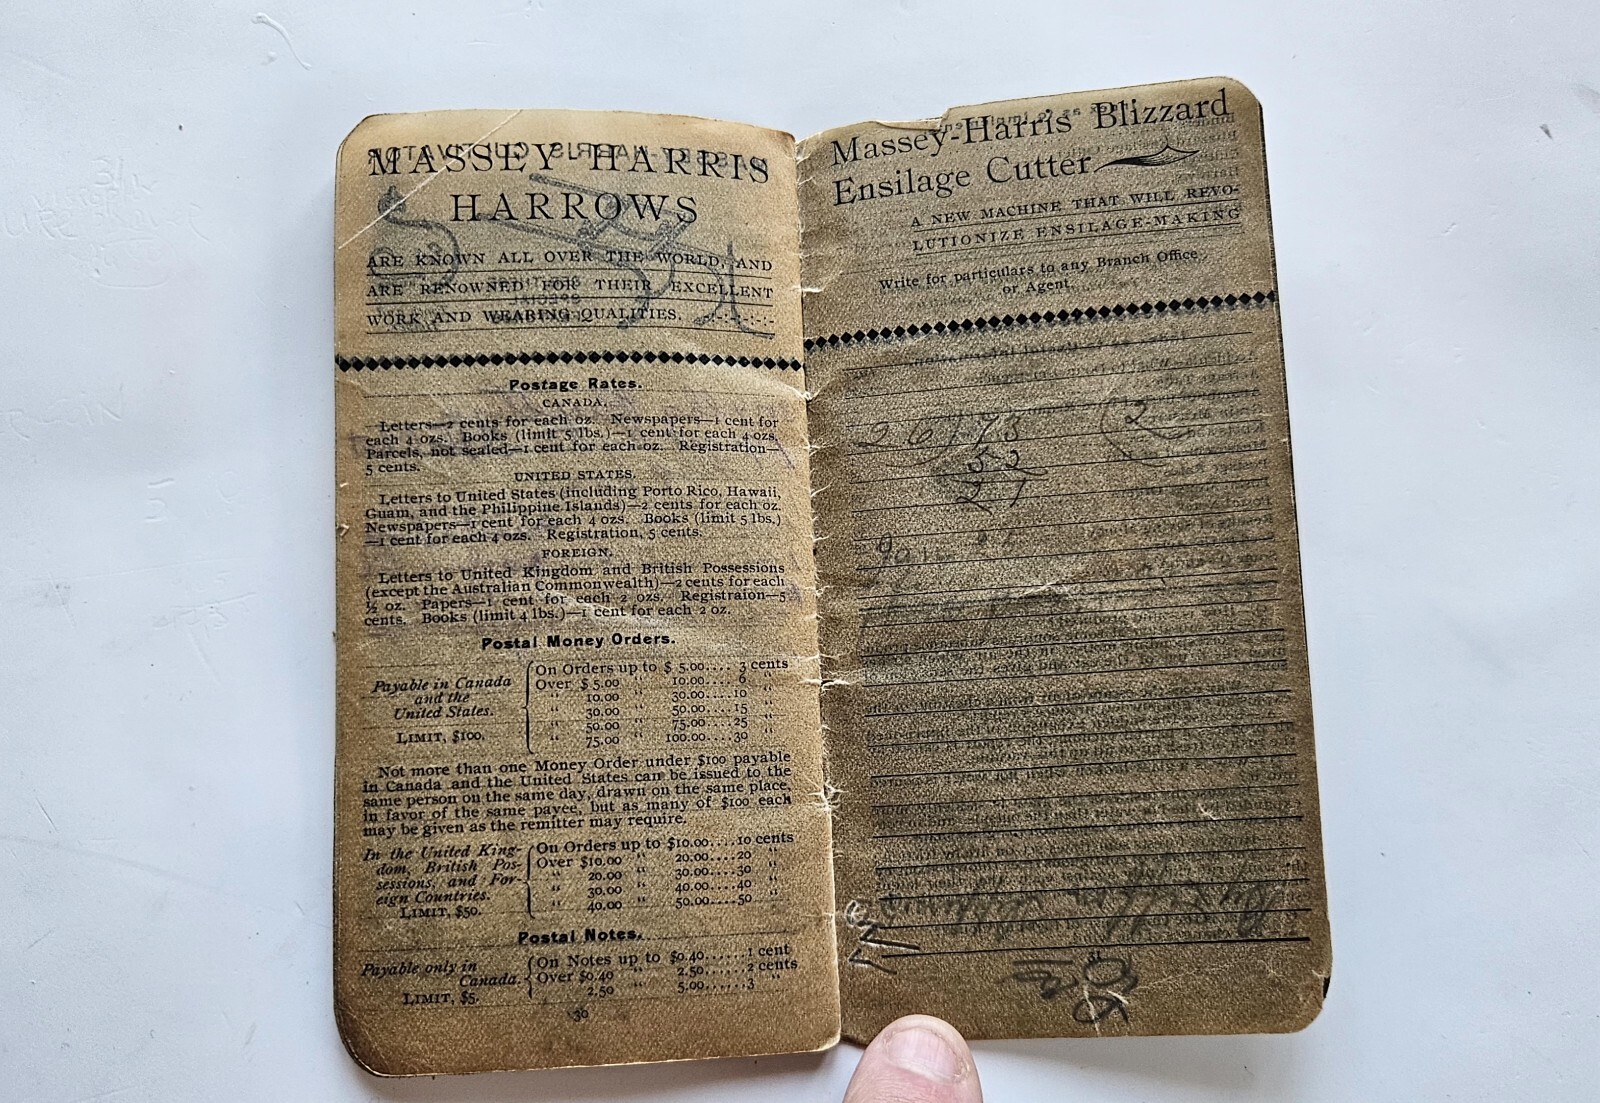 MASSEY HARRIS
HARROWS
ARE KNOWN ALL OVER THE WORLD, AND
ARE RENOWNED FOR THEIR EXCELLENT
WORK AND WEARING QUALITIES.
Postage Rates.
CANADA.
Letters—2 cents for each oz. Newspapers—1 cent for
each 4 ozs. Books (limit 5 lbs.)—1 cent for each 4 ozs.
Parcels, not sealed—1 cent for each oz. Registration—
5 cents.
UNITED STATES.
Letters to United States (including Porto Rico, Hawaii,
Guam, and the Philippine Islands)—2 cents for each oz.
Newspapers—1 cent for each 4 ozs. Books (limit 5 lbs.)
—1 cent for each 4 ozs. Registration, 5 cents.
FOREIGN.
Letters to United Kingdom and British Possessions
(except the Australian Commonwealth)—2 cents for each
½ oz. Papers—1 cent for each 2 ozs. Registraion—5
cents. Books (limit 4 lbs.)—1 cent for each 2 oz.
Postal Money Orders.
Payable in Canada
and the
United States.
LIMIT, $100.
On Orders up to $ 5.00.... 3 cents
Over $ 5.00 " 10.00.... 6 "
" 10.00 " 30.00....10 "
" 30.00 " 50.00....15 "
" 50.00 " 75.00....25 "
" 75.00 " 100.00....30 "
Not more than one Money Order under $100 payable
in Canada and the United States can be issued to the
same person on the same day, drawn on the same place,
in favor of the same payee, but as many of $100 each
may be given as the remitter may require.
In the United King-
dom, British Pos-
sessions, and For-
eign Countries.
LIMIT, $50.
On Orders up to $10.00....10 cents
Over $10.00 " 20.00....20 "
" 20.00 " 30.00....30 "
" 30.00 " 40.00....40 "
" 40.00 " 50.00....50 "
Postal Notes.
Payable only in
Canada.
LIMIT, $5.
On Notes up to $0.40......1 cent
Over $0.40 " 2.50......2 cents
" 2.50 " 5.00......3 "
30
Massey-Harris Blizzard
Ensilage Cutter
A NEW MACHINE THAT WILL REVO-
LUTIONIZE ENSILAGE-MAKING
Write for particulars to any Branch Office
or Agent.
31